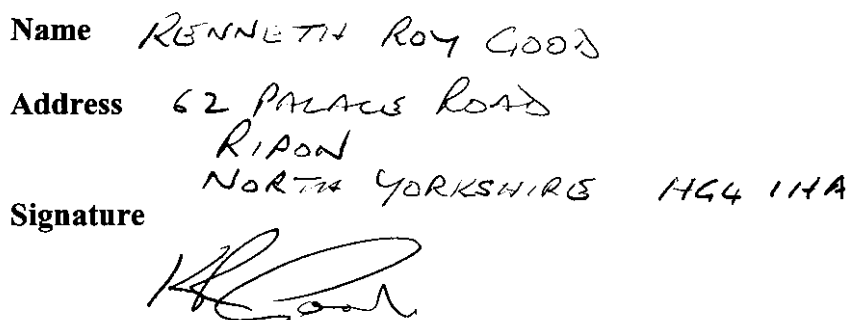 Name KENNETH ROY GOOD
Address 62 PALACE ROAD
RIPON
NORTH YORKSHIRE HG4 1HA
Signature
KR Good